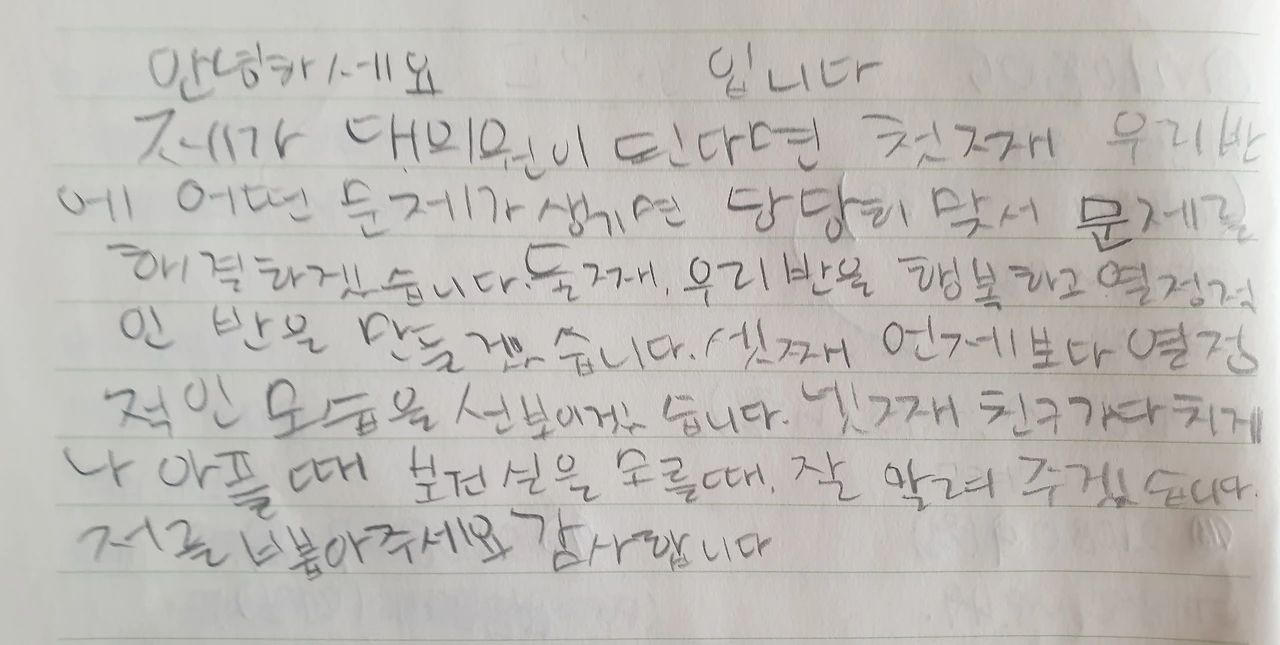 안녕하세요 입니다
제가 대의원이 된다면 첫째 우리반
에 어떤 문제가 생기면 당당히 맞서 문제를
해결하겠습니다. 둘째, 우리 반을 행복하고 열정적
인 반을 만들겠습니다. 셋째 언제보다 열정
적인 모습을 선보이겠습니다. 넷째 친구가 다치게
나 아플 때 보건실을 모를때, 잘 알려 주겠습니다.
저를 뽑아주세요 감사합니다